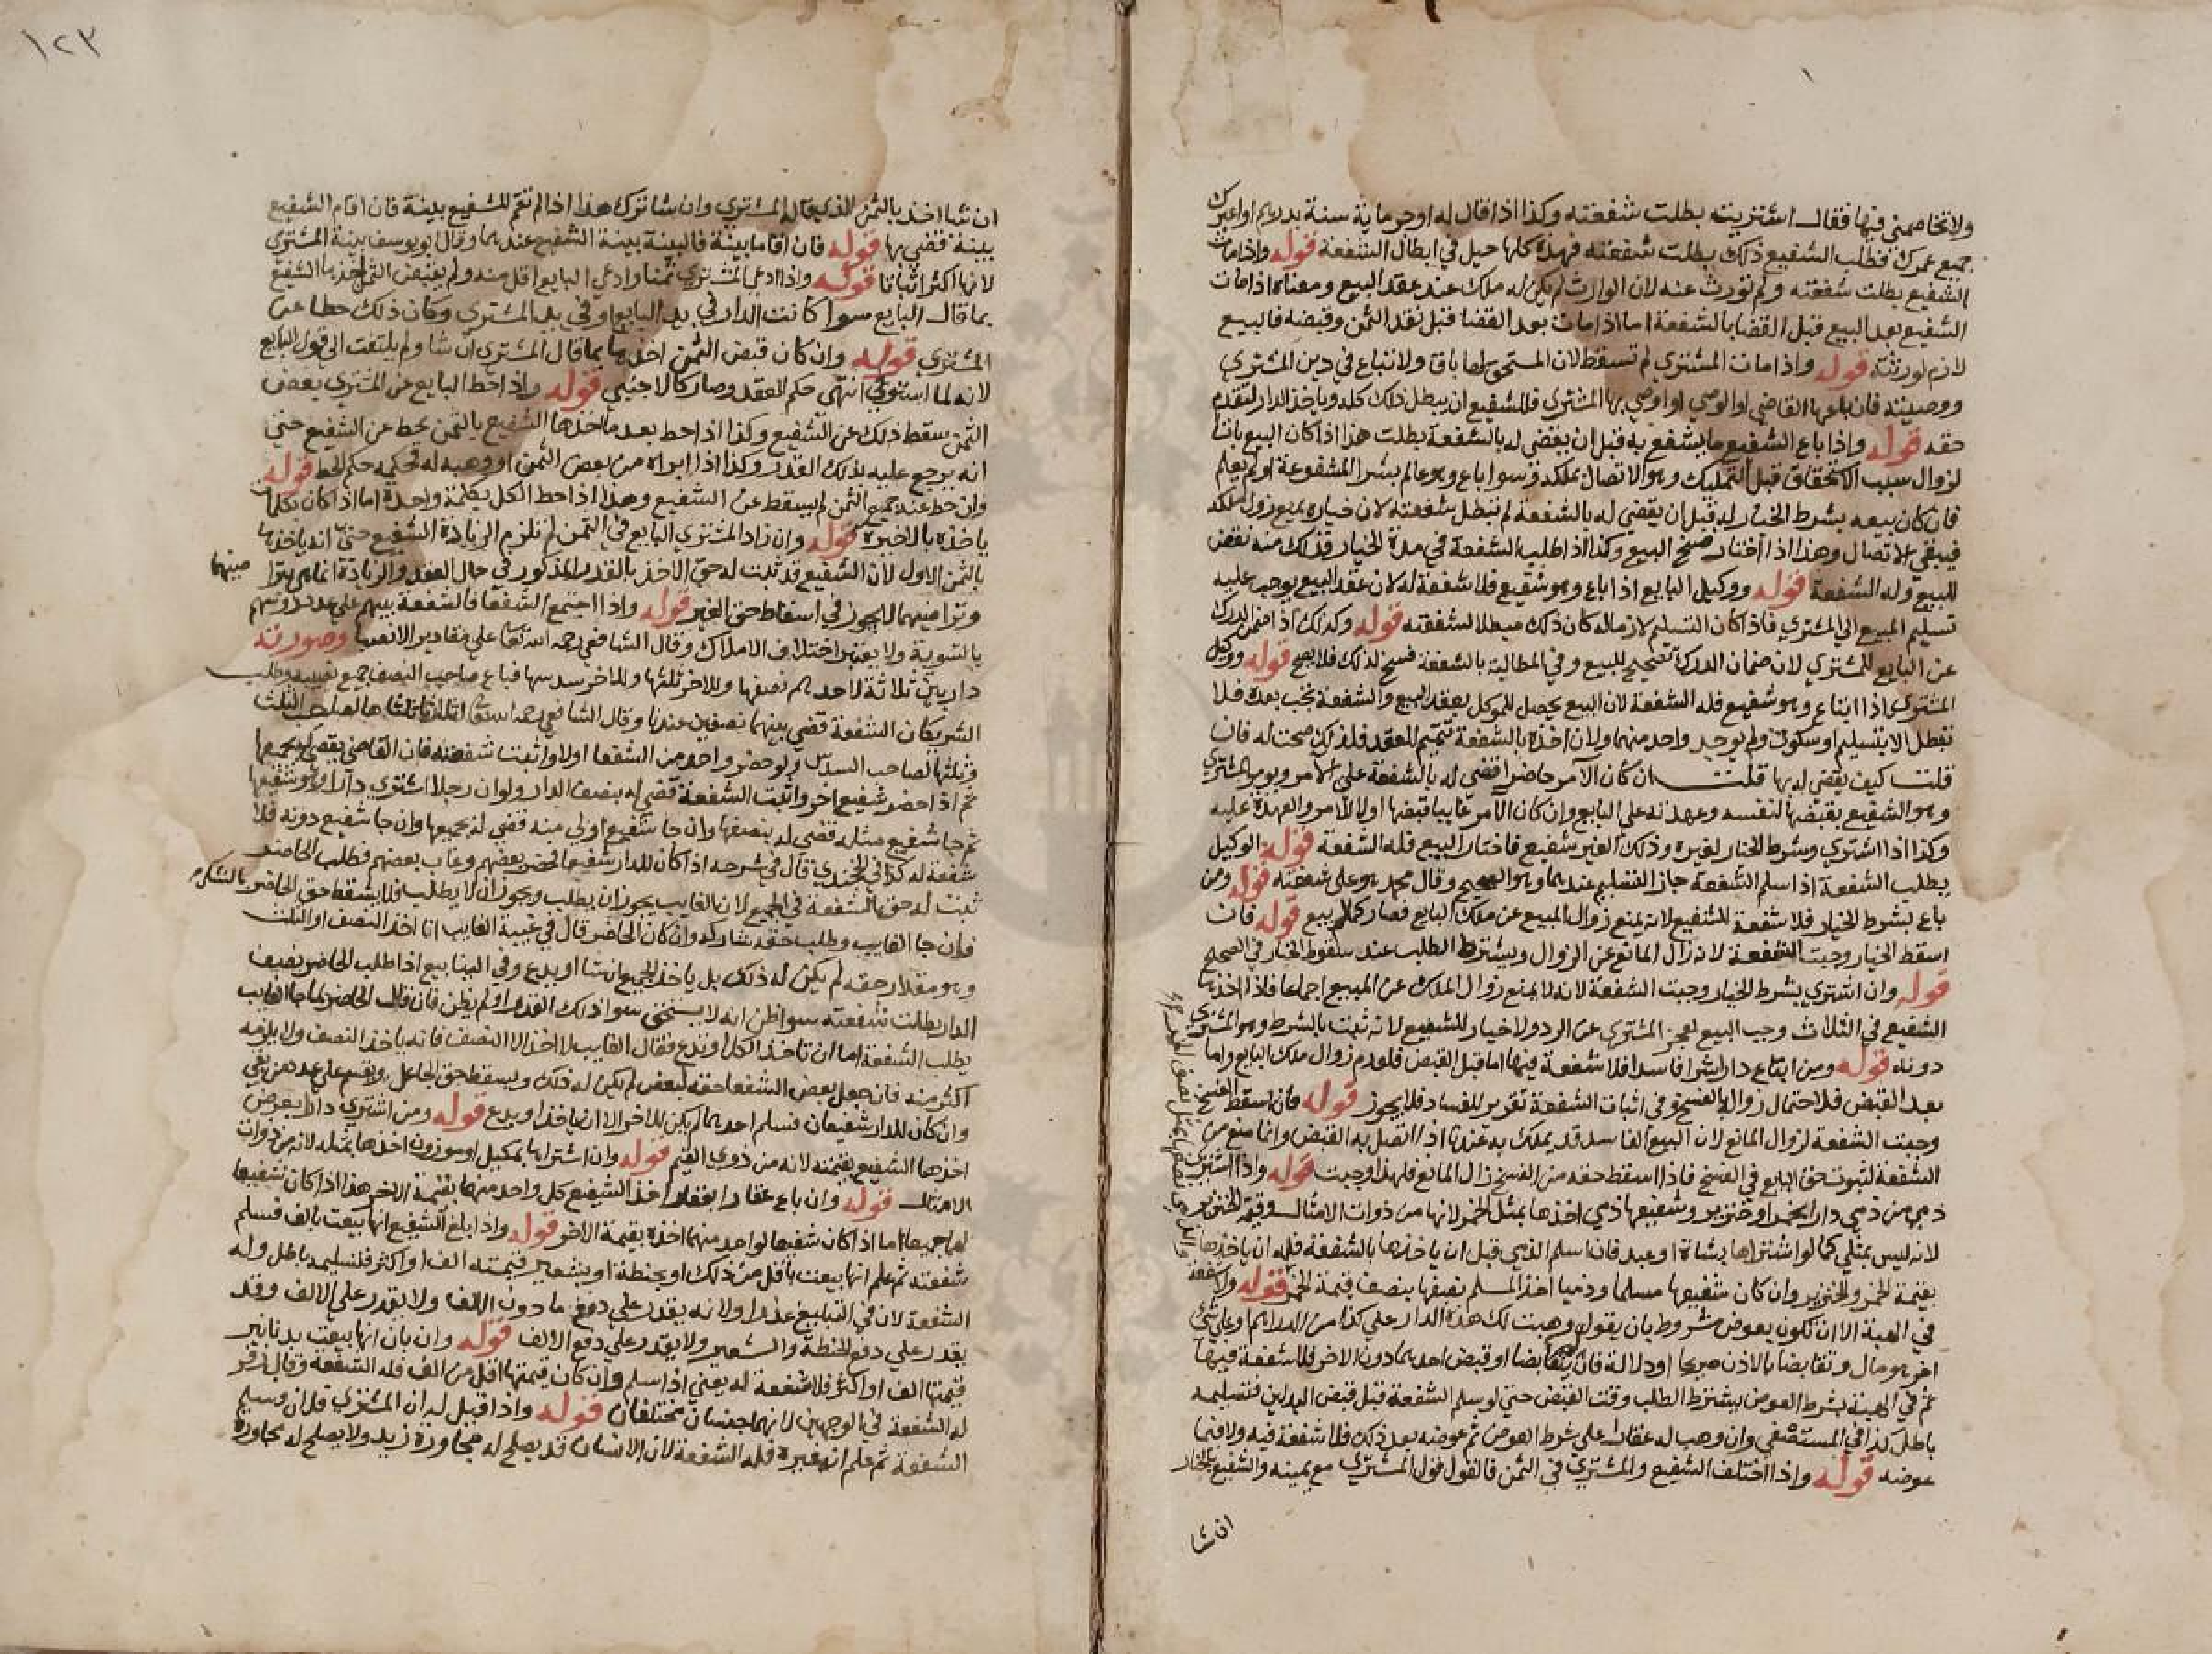 ولا تخاصمني فيها فقال اشتريت بطلت شفعته وكذا اذا قال له اوجرها مية سنة بدرهم او اعيرك
جميع عمرك فطلب الشفيع ذلك بطلت شفعته فهذه كلها حيل في ابطال الشفعة قوله واذا مات
الشفيع بعد البيع بطلت شفعته ولم تورث عنه لان الوارث لم يكن له ملك عند عقد البيع ومعناه اذا مات
الشفيع بعد البيع قبل القضا بالشفعة اما اذا مات بعد القضا قبل نقد الثمن وقبضه فالبيع
لازم لورثته قوله واذا مات المشتري لم تسقط لان المستحق لها باق ولا تباع في دين المشتري
ووصيته فان باعها القاضي او الوصي او اوصي بها المشتري فللشفيع ان يبطل ذلك كله وياخذ الدار لتقدم
حقه قوله واذا باع الشفيع ما يشفع به قبل ان يقضي له بالشفعة بطلت هذا اذا كان البيع باتا
لزوال سبب الاستحقاق قبل التمليك وهو الاتصال بملكه وسوا باع وهو عالم بشرا المشفوعة او لم يعلم
فان كان بيعه بشرط الخيار له قبل ان يقضي له بالشفعة لم تبطل شفعته لان خياره يمنع زوال ملكه
فيبقي الاتصال وهذا اذا اختار فسخ البيع وكذا اذا طلب الشفعة في مدة الخيار فذلك منه نقض
للبيع وله الشفعة قوله ووكيل البايع اذا باع وهو شفيع فلا شفعة له لان عقد البيع يوجب عليه
تسليم المبيع الي المشتري فاذا كان التسليم لازما له كان ذلك مبطلا لشفعته قوله وكذلك اذا ضمن الدرك
عن البايع للمشتري لان ضمان الدرك تصحيح للبيع وفي المطالبة بالشفعة فسخ لذلك فلا يصح قوله ووكيل
المشتري اذا ابتاع وهو شفيع فله الشفعة لان البيع يحصل للموكل بعقد البيع والشفعة تجب بعده فلا
تبطل الا بتسليم او سكوت ولم يوجد واحد منهما ولان اخذه بالشفعة تتميم للعقد فلذلك صحت له فان
قلت كيف يقضي له بها قلت ان كان الآمر حاضرا قضي له بالشفعة علي الآمر ويومر المشتري
وهو الشفيع بقبضها لنفسه وعهدته علي البايع وان كان الآمر غايبا قبضها اولا للآمر والعهدة عليه
وكذا اذا اشتري وشرط الخيار لغيره وذلك الغير شفيع فاختار البيع فله الشفعة قوله الوكيل
بطلب الشفعة اذا سلم الشفعة جاز التسليم عندهما وهو الصحيح وقال محمد هو علي شفعته قوله ومن
باع بشرط الخيار فلا شفعة للشفيع لانه يمنع زوال المبيع عن ملك البايع فصار كما لم يبع قوله فان
اسقط الخيار وجبت الشفعة لانه زال المانع عن الزوال ويشترط الطلب عند سقوط الخيار في الصحيح
قوله وان اشتري بشرط الخيار وجبت الشفعة لانه لا يمنع زوال الملك عن المبيع اجماعا فاذا اخذها
الشفيع في الثلاث وجب البيع لعجز المشتري عن الرد ولا خيار للشفيع لانه ثبت بالشرط وهو للمشتري
دونه قوله ومن ابتاع دارا شرا فاسدا فلا شفعة فيها اما قبل القبض فلعدم زوال ملك البايع واما
بعد القبض فلاحتمال زواله بالفسخ وفي اثبات الشفعة تقرير للفساد فلا يجوز قوله فان سقط الفسخ
وجبت الشفعة لزوال المانع لان البيع الفاسد قد يملك به عندنا اذا اتصل به القبض وانما منع من
الشفعة لثبوت حق البايع في الفسخ فاذا اسقط حقه من الفسخ زال المانع فلهذا وجبت قوله واذا اشتري
ذمي من ذمي دارا بخمر او خنزير وشفيعها ذمي اخذها بمثل الخمر لانها من ذوات الامثال وقيمة الخنزير
لانه ليس بمثلي كما لو اشتراها بشاة او عبد فان اسلم الذمي قبل ان ياخذها بالشفعة فله ان ياخذها
بقيمة الخمر والخنزير وان كان شفيعها مسلما وذميا اخذ المسلم نصفها بنصف قيمة الخمر قوله ولا شفعة
في الهبة الا ان تكون بعوض مشروط بان يقول وهبت لك هذه الدار علي كذا من الدراهم او علي شي
اخر هو مال وتقابضا بالاذن صريحا او دلالة فان لم يتقابضا او قبض احدهما دون الاخر فلا شفعة فيها
ثم في الهبة بشرط العوض يشترط الطلب وقت القبض حتي لو سلم الشفعة قبل قبض البدلين فتسليمه
باطل كذا في المستصفي وان وهب له عقارا علي شرط العوض ثم عوضه بعد ذلك فلا شفعة فيه ولا فيما
عوضه قوله واذا اختلف الشفيع والمشتري في الثمن فالقول قول المشتري مع يمينه والشفيع بالخيار
ان شا
١٢٣
ان شا اخذ بالثمن الذي قاله المشتري وان شا ترك هذا اذا لم تقم للشفيع بينة فان اقام الشفيع
بينة قضي بها قوله فان اقاما بينة فالبينة بينة الشفيع عندهما وقال ابو يوسف بينة المشتري
لانها اكثر اثباتا قوله واذا ادعي المشتري ثمنا وادعي البايع اقل منه ولم يقبض الثمن اخذها الشفيع
بما قال البايع سوا كانت الدار في يد البايع او في يد المشتري وكان ذلك حطا عن
المشتري قوله وان كان قبض الثمن اخذها بما قال المشتري ان شا ولم يلتفت الي قول البايع
لانه لما استوفي انتهي حكم العقد وصار كالاجنبي قوله واذا حط البايع عن المشتري بعض
الثمن سقط ذلك عن الشفيع وكذا اذا حط بعد ما اخذها الشفيع بالثمن يحط عن الشفيع حتي
انه يرجع عليه بذلك القدر وكذا اذا ابراه من بعض الثمن او وهبه له فحكمه حكم الحط قوله
وان حط عنه جميع الثمن لم يسقط عن الشفيع وهذا اذا حط الكل بكلمة واحدة اما اذا كان بكلمات
ياخذه بالاخيره قوله وان زاد المشتري البايع في الثمن لم تلزم الزيادة الشفيع حتي انه ياخذها
بالثمن الاول لان الشفيع قد ثبت له حق الاخذ بالقدر المذكور في حال العقد والزيادة انما هي بترا ضيهما
وتراضيهما لا يجوز في اسقاط حق الغير قوله واذا اجتمع الشفعا فالشفعة بينهم علي عدد روسهم
بالسوية ولا يعتبر اختلاف الاملاك وقال الشافعي رحمه الله تعا علي مقادير الانصبا وصورته
دار بين ثلاثة لاحدهم نصفها وللاخر ثلثها وللاخر سدسها فباع صاحب النصف جميع نصيبه وطلب
الشريكان الشفعة قضي بينهما نصفين عندنا وقال الشافعي رحمه الله تعا اثلاثا ثلثاها لصاحب الثلث
وثلثها لصاحب السدس ولو حضر واحد من الشفعا اولا واثبت شفعته فان القاضي يقضي له بجميعها
ثم اذا حضر شفيع اخر واثبت الشفعة قضي له بنصف الدار ولو ان رجلا اشتري دارا وهو شفيعها
ثم جا شفيع مثله قضي له بنصفها وان جا شفيع اولي منه قضي له بجميعها وان جا شفيع دونه فلا
شفعة له كذا في الخجندي قال في شرحه اذا كان للدار شفعا فحضر بعضهم وغاب بعضهم فطلب الحاضر
ثبت له حق الشفعة في الجميع لان الغايب يجوز ان يطلب ويجوز ان لا يطلب فلا يسقط حق الحاضر بالشك
فان جا الغايب وطلب حقه شاركه وان كان الحاضر قال في غيبة الغايب انا اخذ النصف او الثلث
وهو مقدار حقه لم يكن له ذلك بل ياخذ الجميع ان شا او يدع وفي الينابيع اذا طلب الحاضر نصف
الدار بطلت شفعته سوا ظن انه لا يستحق سوا ذلك القدر او لم يظن فان قال الحاضر لما جا الغايب
يطلب الشفعة اما ان تاخذ الكل او تدع فقال الغايب لا اخذ الا النصف فانه ياخذ النصف ولا يلزمه
اكثر منه فان جعل بعض الشفعا حقه لبعض لم يكن له ذلك ويسقط حق الجاعل ويقسم علي عدد من بقي
وان كان للدار شفيعان فسلم احدهما لم يكن للاخر الا ان ياخذ او يدع قوله ومن اشتري دارا بعوض
اخذها الشفيع بقيمته لانه من ذوي القيم قوله وان اشتراها بمكيل او موزون اخذها بمثله لانه من ذوات
الامثال قوله وان باع عقارا بعقار اخذ الشفيع كل واحد منهما بقيمة الاخر هذا اذا كان شفيعا
لهما جميعا اما اذا كان شفيعا لواحد منهما اخذه بقيمة الاخر قوله واذا بلغ الشفيع انها بيعت بالف فسلم
شفعته ثم علم انها بيعت باقل من ذلك او بحنطة او بشعير قيمته الف او اكثر فتسليمه باطل وله
الشفعة لان في التبليغ عذرا ولانه يقدر علي دفع ما دون الالف ولا يقدر علي الالف وقد
يقدر علي دفع الحنطة والشعير ولا يقدر علي دفع الالف قوله وان بان انها بيعت بدنانير
قيمتها الف او اكثر فلا شفعة له يعني اذا سلم وان كان قيمتها اقل من الف فله الشفعة وقال زفر
له الشفعة في الوجهين لانهما جنسان مختلفان قوله واذا قيل له ان المشتري فلان وسلم
الشفعة ثم علم انه غيره فله الشفعة لان الانسان قد يصلح له مجاورة زيد ولا يصلح له مجاورة